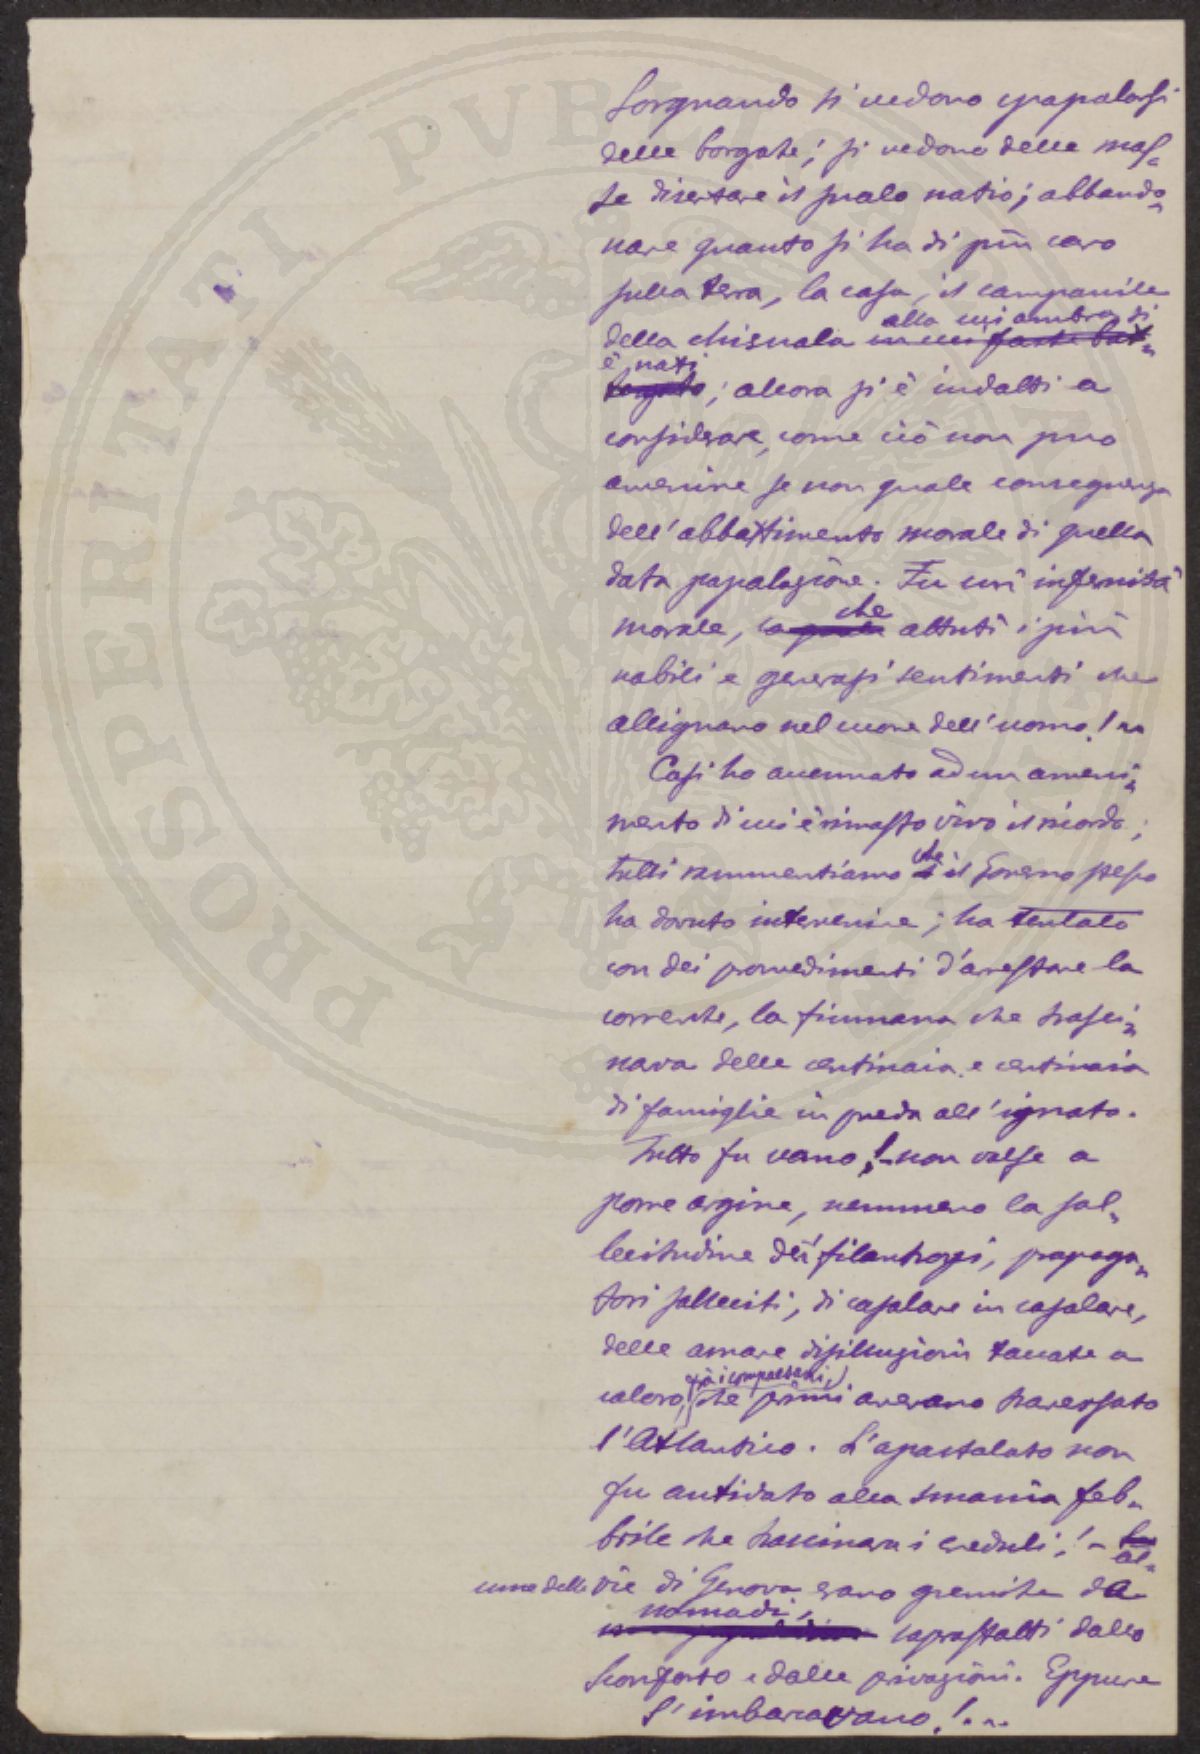 PROSPERITATI PVBLICAE
Sorgnando si vedono spopolarsi
delle borgate; si vedono delle mas-
se disertare il suolo natio; abbando-
nare quanto si ha di più caro
sulla terra, la casa, il campanile
della chiesuola alla cui ombra si
è nati; allora si è indotti a
considerare, come ciò non può
avvenire se non quale conseguenza
dell'abbattimento morale di quella
data popolazione. Fu un'infermità
morale, che attutì i più
nobili e generosi sentimenti che
allignano nel cuore dell'uomo!
Così ho accennato ad un avveni-
mento di cui è rimasto vivo il ricordo;
tutti rammentiamo che il Governo stesso
ha dovuto intervenire; ha tentato
con dei provvedimenti d'arrestare la
corrente, la fiumana che trasci-
nava delle centinaia e centinaia
di famiglie in preda all'ignoto.
Tutto fu vano!- non valse a
porre argine, nemmeno la sol-
lecitudine dei filantropi, propaga-
tori solleciti, di casolare in casolare,
delle amare disillusioni toccate a
coloro, già i compaesani, che primi avevano traversato
l'Atlantico. L'apostolato non
fu antidoto alla smania feb-
brile che trascinava i creduli! - al-
cune delle vie di Genova erano gremite da
nomadi, sopraffatti dallo
sconforto e dalle privazioni. Eppure
s'imbarcavano!...